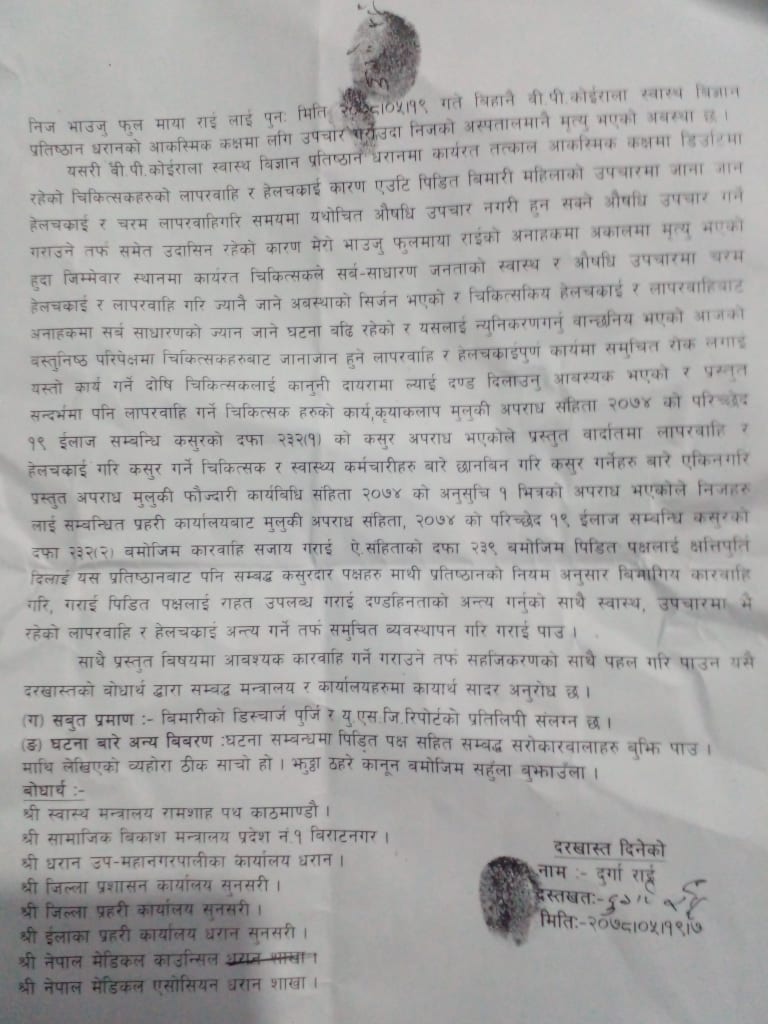 निज भाउजु फुल माया राई लाई पुनः मिति २०७८।०५।१९ गते बिहानै बी.पी.कोईराला स्वास्थ बिज्ञान
प्रतिष्ठान धरानको आकस्मिक कक्षमा लगि उपचार गराउदा निजको अस्पतालमानै मृत्यु भएको अबस्था छ ।
यसरी बी.पी.कोईराला स्वास्थ बिज्ञान प्रतिष्ठान धरानमा कार्यरत तत्काल आकस्मिक कक्षमा डिउटिमा
रहेको चिकित्सकहरुको लापरवाहि र हेलचकाई कारण एउटि पिडित बिमारी महिलाको उपचारमा जाना जान
हेलचकाई र चरम लापरवाहिगरि समयमा यथोचित औषधि उपचार नगरी हुन सक्ने औषधि उपचार गर्ने
गराउने तर्फ समेत उदासिन रहेको कारण मेरो भाउजु फुलमाया राईको अनाहकमा अकालमा मृत्यु भएको
हुदा जिम्मेवार स्थानमा कार्यरत चिकित्सकले सर्ब-साधारण जनताको स्वास्थ र औषधि उपचारमा चरम
हेलचकाई र लापरवाहि गरि ज्यानै जाने अबस्थाको सिर्जन भएको र चिकित्सकिय हेलचकाई र लापरवाहिबाट
अनाहकमा सर्ब साधारणको ज्यान जाने घटना बढि रहेको र यसलाई न्युनिकरणगर्नु वान्छनिय भएको आजको
बस्तुनिष्ठ परिपेक्षमा चिकित्सकहरुबाट जानाजान हुने लापरवाहि र हेलचकाईपुर्ण कार्यमा समुचित रोक लगाई
यस्तो कार्य गर्ने दोषि चिकित्सकलाई कानुनी दायरामा ल्याई दण्ड दिलाउनु आबस्यक भएको र प्रस्तुत
सन्दर्भमा पनि लापरवाहि गर्ने चिकित्सक हरुको कार्य,कृयाकलाप मुलुकी अपराध संहिता २०७४ को परिच्छेद
१९ ईलाज सम्बन्धि कसुरको दफा २३२(१) को कसुर अपराध भएकोले प्रस्तुत वार्दातमा लापरवाहि र
हेलचकाई गरि कसुर गर्ने चिकित्सक र स्वास्थ्य कर्मचारीहरु बारे छानबिन गरि कसुर गर्नेहरु बारे एकिनगरि
प्रस्तुत अपराध मुलुकी फौज्दारी कार्यबिधि संहिता २०७४ को अनुसुचि १ भित्रको अपराध भएकोले निजहरु
लाई सम्बन्धित प्रहरी कार्यालयबाट मुलुकी अपराध संहिता, २०७४ को परिच्छेद १९ ईलाज सम्बन्धि कसुरको
दफा २३२(२) बमोजिम कारवाहि सजाय गराई ऐ.संहिताको दफा २३९ बमोजिम पिडित पक्षलाई क्षत्तिपुर्ति
दिलाई यस प्रतिष्ठानबाट पनि सम्बद्ध कसुरदार पक्षहरु माथी प्रतिष्ठानको नियम अनुसार बिभागिय कारवाहि
गरि, गराई पिडित पक्षलाई राहत उपलब्ध गराई दण्डहिनताको अन्त्य गर्नुको साथै स्वास्थ, उपचारमा भै
रहेको लापरवाहि र हेलचकाई अन्त्य गर्ने तर्फ समुचित ब्यवस्थापन गरि गराई पाउ ।
साथै प्रस्तुत बिषयमा आबश्यक कारवाहि गर्ने गराउने तर्फ सहजिकरणको साथै पहल गरि पाउन यसै
दरखास्तको बोधार्थ द्वारा सम्बद्ध मन्त्रालय र कार्यालयहरुमा कार्यार्थ सादर अनुरोध छ ।
(ग) सबुत प्रमाण :- बिमारीको डिस्चार्ज पुर्जि र यु.एस.जि.रिपोर्टको प्रतिलिपी संलग्न छ ।
(ङ) घटना बारे अन्य बिबरण :घटना सम्बन्धमा पिडित पक्ष सहित सम्बद्ध सरोकारवालाहरु बुझि पाउ ।
माथि लेखिएको व्यहोरा ठीक साचो हो । झुठ्ठा ठहरे कानून बमोजिम सहुँला बुझाउँला ।
बोधार्थ :-
श्री स्वास्थ मन्त्रालय रामशाह पथ काठमाण्डौ ।
श्री सामाजिक बिकाश मन्त्रालय प्रदेश नं.१ बिराटनगर ।
श्री धरान उप-महानगरपालीका कार्यालय धरान ।
श्री जिल्ला प्रशासन कार्यालय सुनसरी ।
श्री जिल्ला प्रहरी कार्यालय सुनसरी ।
श्री ईलाका प्रहरी कार्यालय धरान सुनसरी ।
श्री नेपाल मेडिकल काउन्सिल धरान शाखा ।
श्री नेपाल मेडिकल एसोसियन धरान शाखा ।
दरखास्त दिनेको
नाम :- दुर्गा राई
दस्तखतः-
मितिः-२०७८।०५।१९।७